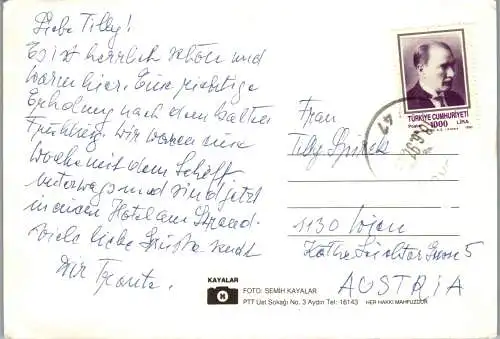 Liebe Tilly!
Es ist herrlich schön und
warm hier. Eine richtige
Erholung nach dem kalten
Frühling. Wir waren eine
Woche mit dem Schiff
unterwegs und sind jetzt
in einem Hotel am Strand.
Viele liebe Grüße sendt
Dir
Frau
Tilly
1130 Wien
5
AUSTRIA
TÜRKİYE CUMHURİYETİ
1000 LİRA
KAYALAR
FOTO: SEMİH KAYALAR
PTT Üst Sokağı No. 3 Aydın Tel: 16143
HER HAKKI MAHFUZDUR